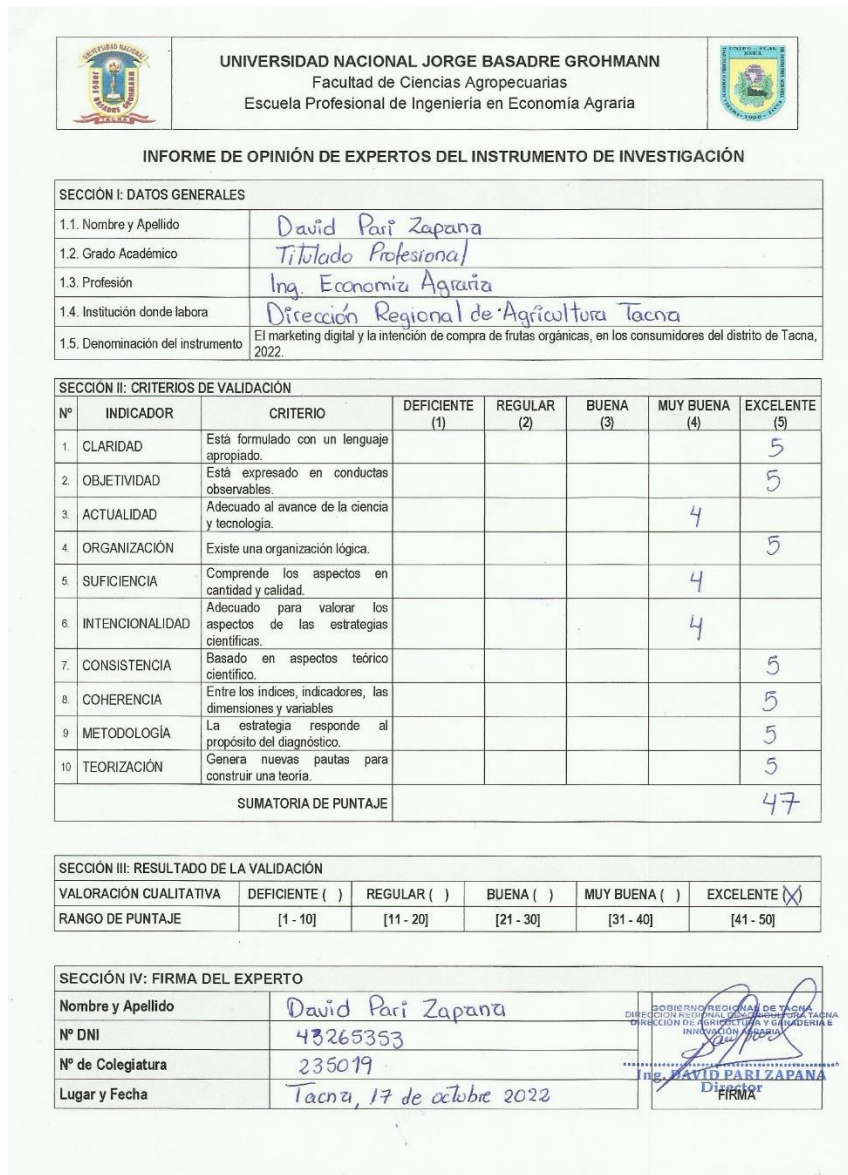 UNIVERSIDAD NACIONAL JORGE BASADRE GROHMANN
Facultad de Ciencias Agropecuarias
Escuela Profesional de Ingeniería en Economía Agraria
INFORME DE OPINIÓN DE EXPERTOS DEL INSTRUMENTO DE INVESTIGACIÓN
SECCIÓN I: DATOS GENERALES
1.1. Nombre y Apellido David Pari Zapana
1.2. Grado Académico Titulado Profesional
1.3. Profesión Ing. Economía Agraria
1.4. Institución donde labora Dirección Regional de Agricultura Tacna
1.5. Denominación del instrumento El marketing digital y la intención de compra de frutas orgánicas, en los consumidores del distrito de Tacna,
2022.
SECCIÓN II: CRITERIOS DE VALIDACIÓN
Nº INDICADOR CRITERIO DEFICIENTE (1) REGULAR (2) BUENA (3) MUY BUENA (4) EXCELENTE (5)
1. CLARIDAD Está formulado con un lenguaje
apropiado. 5
2. OBJETIVIDAD Está expresado en conductas
observables. 5
3. ACTUALIDAD Adecuado al avance de la ciencia
y tecnología. 4
4. ORGANIZACIÓN Existe una organización lógica. 5
5. SUFICIENCIA Comprende los aspectos en
cantidad y calidad. 4
6. INTENCIONALIDAD Adecuado para valorar los
aspectos de las estrategias
científicas. 4
7. CONSISTENCIA Basado en aspectos teórico
científico. 5
8. COHERENCIA Entre los índices, indicadores, las
dimensiones y variables 5
9 METODOLOGÍA La estrategia responde al
propósito del diagnóstico. 5
10 TEORIZACIÓN Genera nuevas pautas para
construir una teoría. 5
SUMATORIA DE PUNTAJE 47
SECCIÓN III: RESULTADO DE LA VALIDACIÓN
VALORACIÓN CUALITATIVA DEFICIENTE ( ) REGULAR ( ) BUENA ( ) MUY BUENA ( ) EXCELENTE (X)
RANGO DE PUNTAJE [1 - 10] [11 - 20] [21 - 30] [31 - 40] [41 - 50]
SECCIÓN IV: FIRMA DEL EXPERTO
Nombre y Apellido David Pari Zapana
Nº DNI 43265353
Nº de Colegiatura 235019
Lugar y Fecha Tacna, 17 de octubre 2022
GOBIERNO REGIONAL DE TACNA
DIRECCION REGIONAL DE AGRICULTURA TACNA
DIRECCIÓN DE AGRICULTURA Y GANADERIA E
INNOVACIÓN AGRARIA
Ing. DAVID PARI ZAPANA
Director
FIRMA